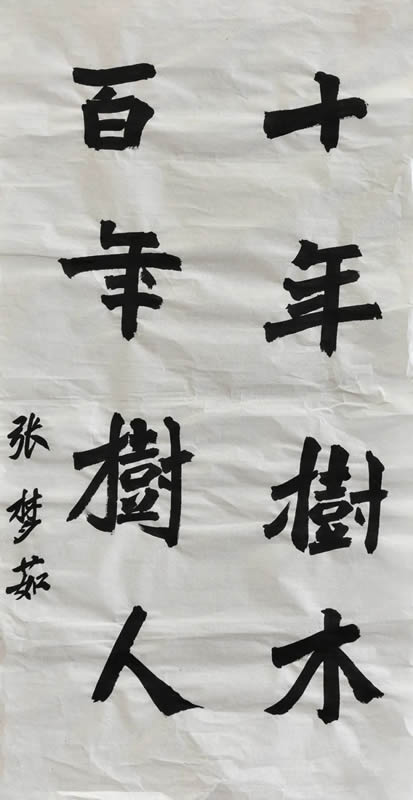 十年樹木
百年樹人
张梦茹